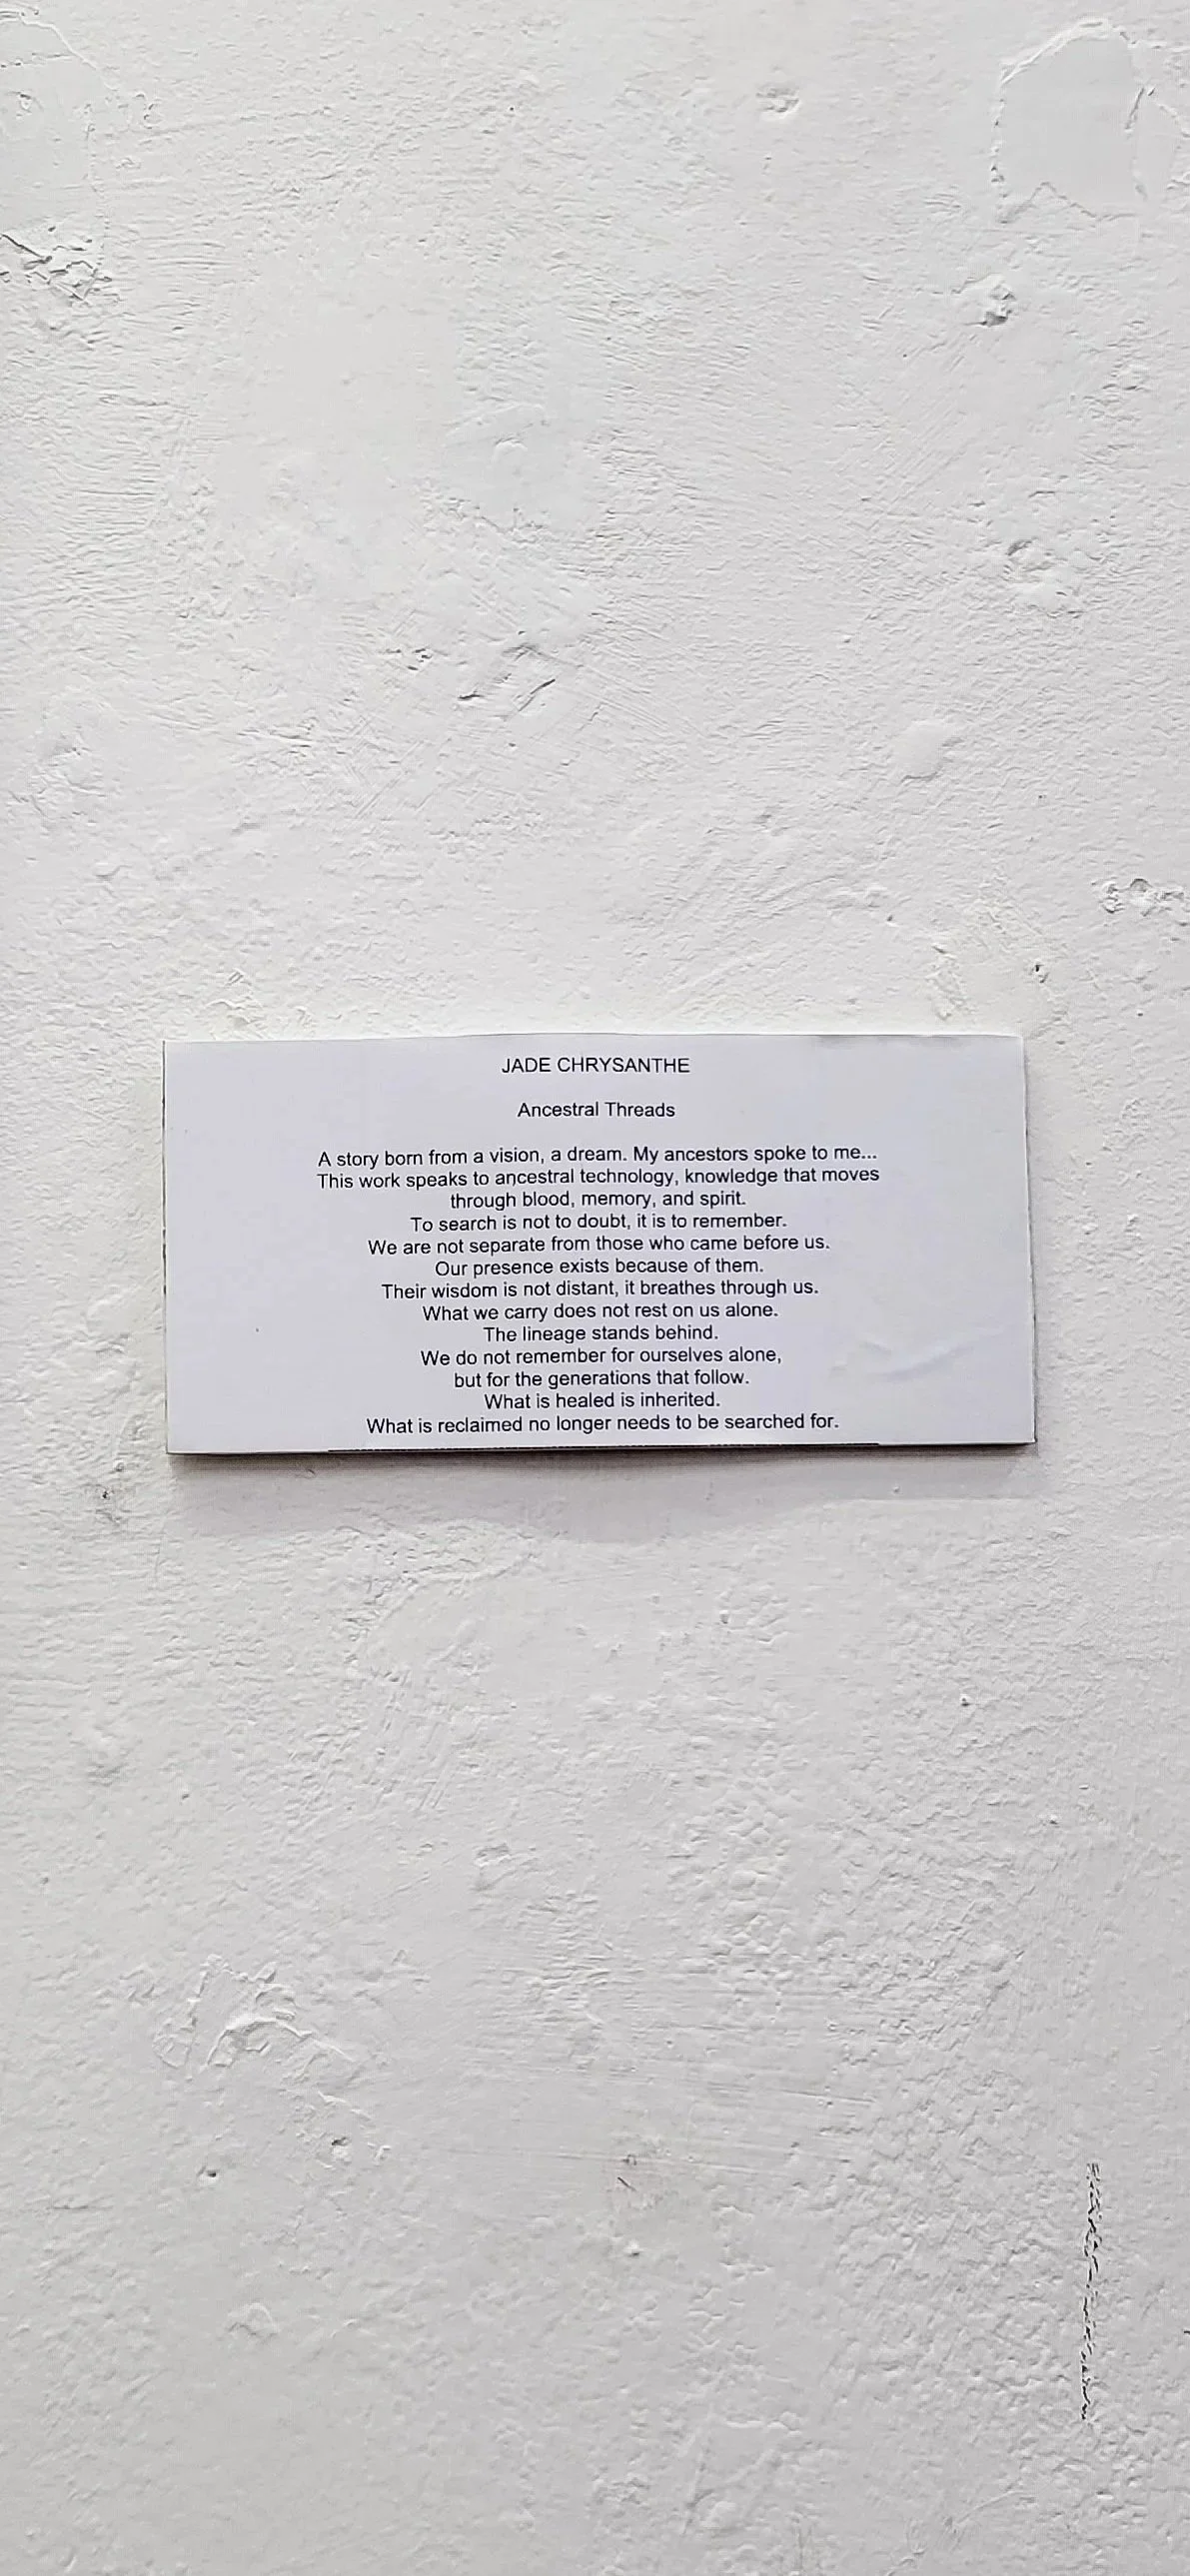 JADE CHRYSANTHE
Ancestral Threads
A story born from a vision, a dream. My ancestors spoke to me...
This work speaks to ancestral technology, knowledge that moves
through blood, memory, and spirit.
To search is not to doubt, it is to remember.
We are not separate from those who came before us.
Our presence exists because of them.
Their wisdom is not distant, it breathes through us.
What we carry does not rest on us alone.
The lineage stands behind.
We do not remember for ourselves alone,
but for the generations that follow.
What is healed is inherited.
What is reclaimed no longer needs to be searched for.